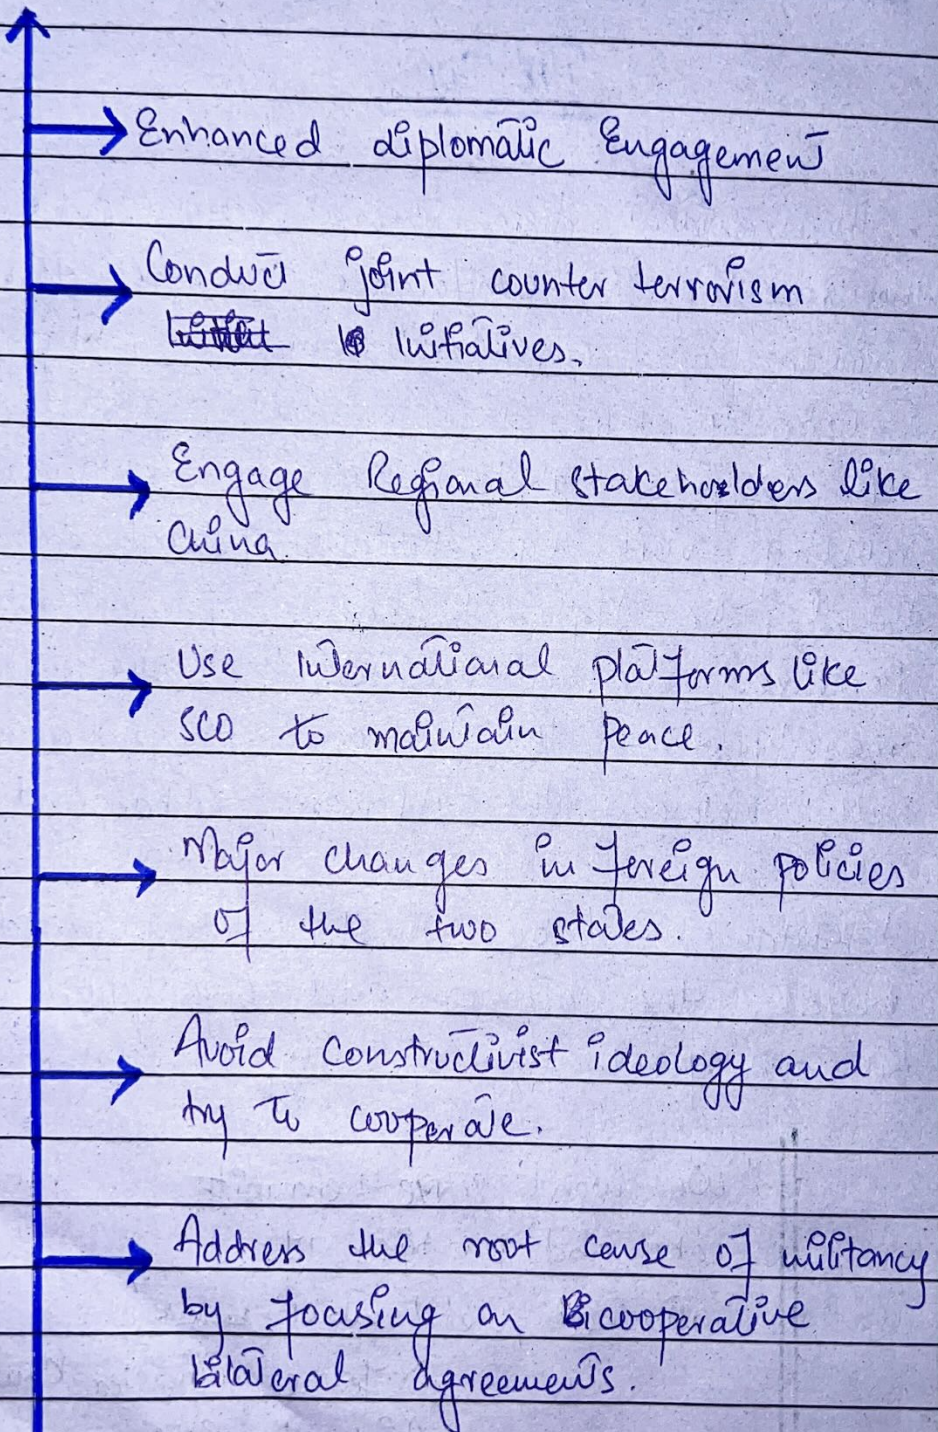 Enhanced diplomatic Engagement
Conduct joint counter terrorism
Initiatives.
Engage Regional stakeholders like
China.
Use International platforms like
SCO to maintain peace.
Major changes in foreign policies
of the two states.
Avoid constructivist ideology and
try to cooperate.
Address the root cause of militancy
by focusing on cooperative
bilateral agreements.